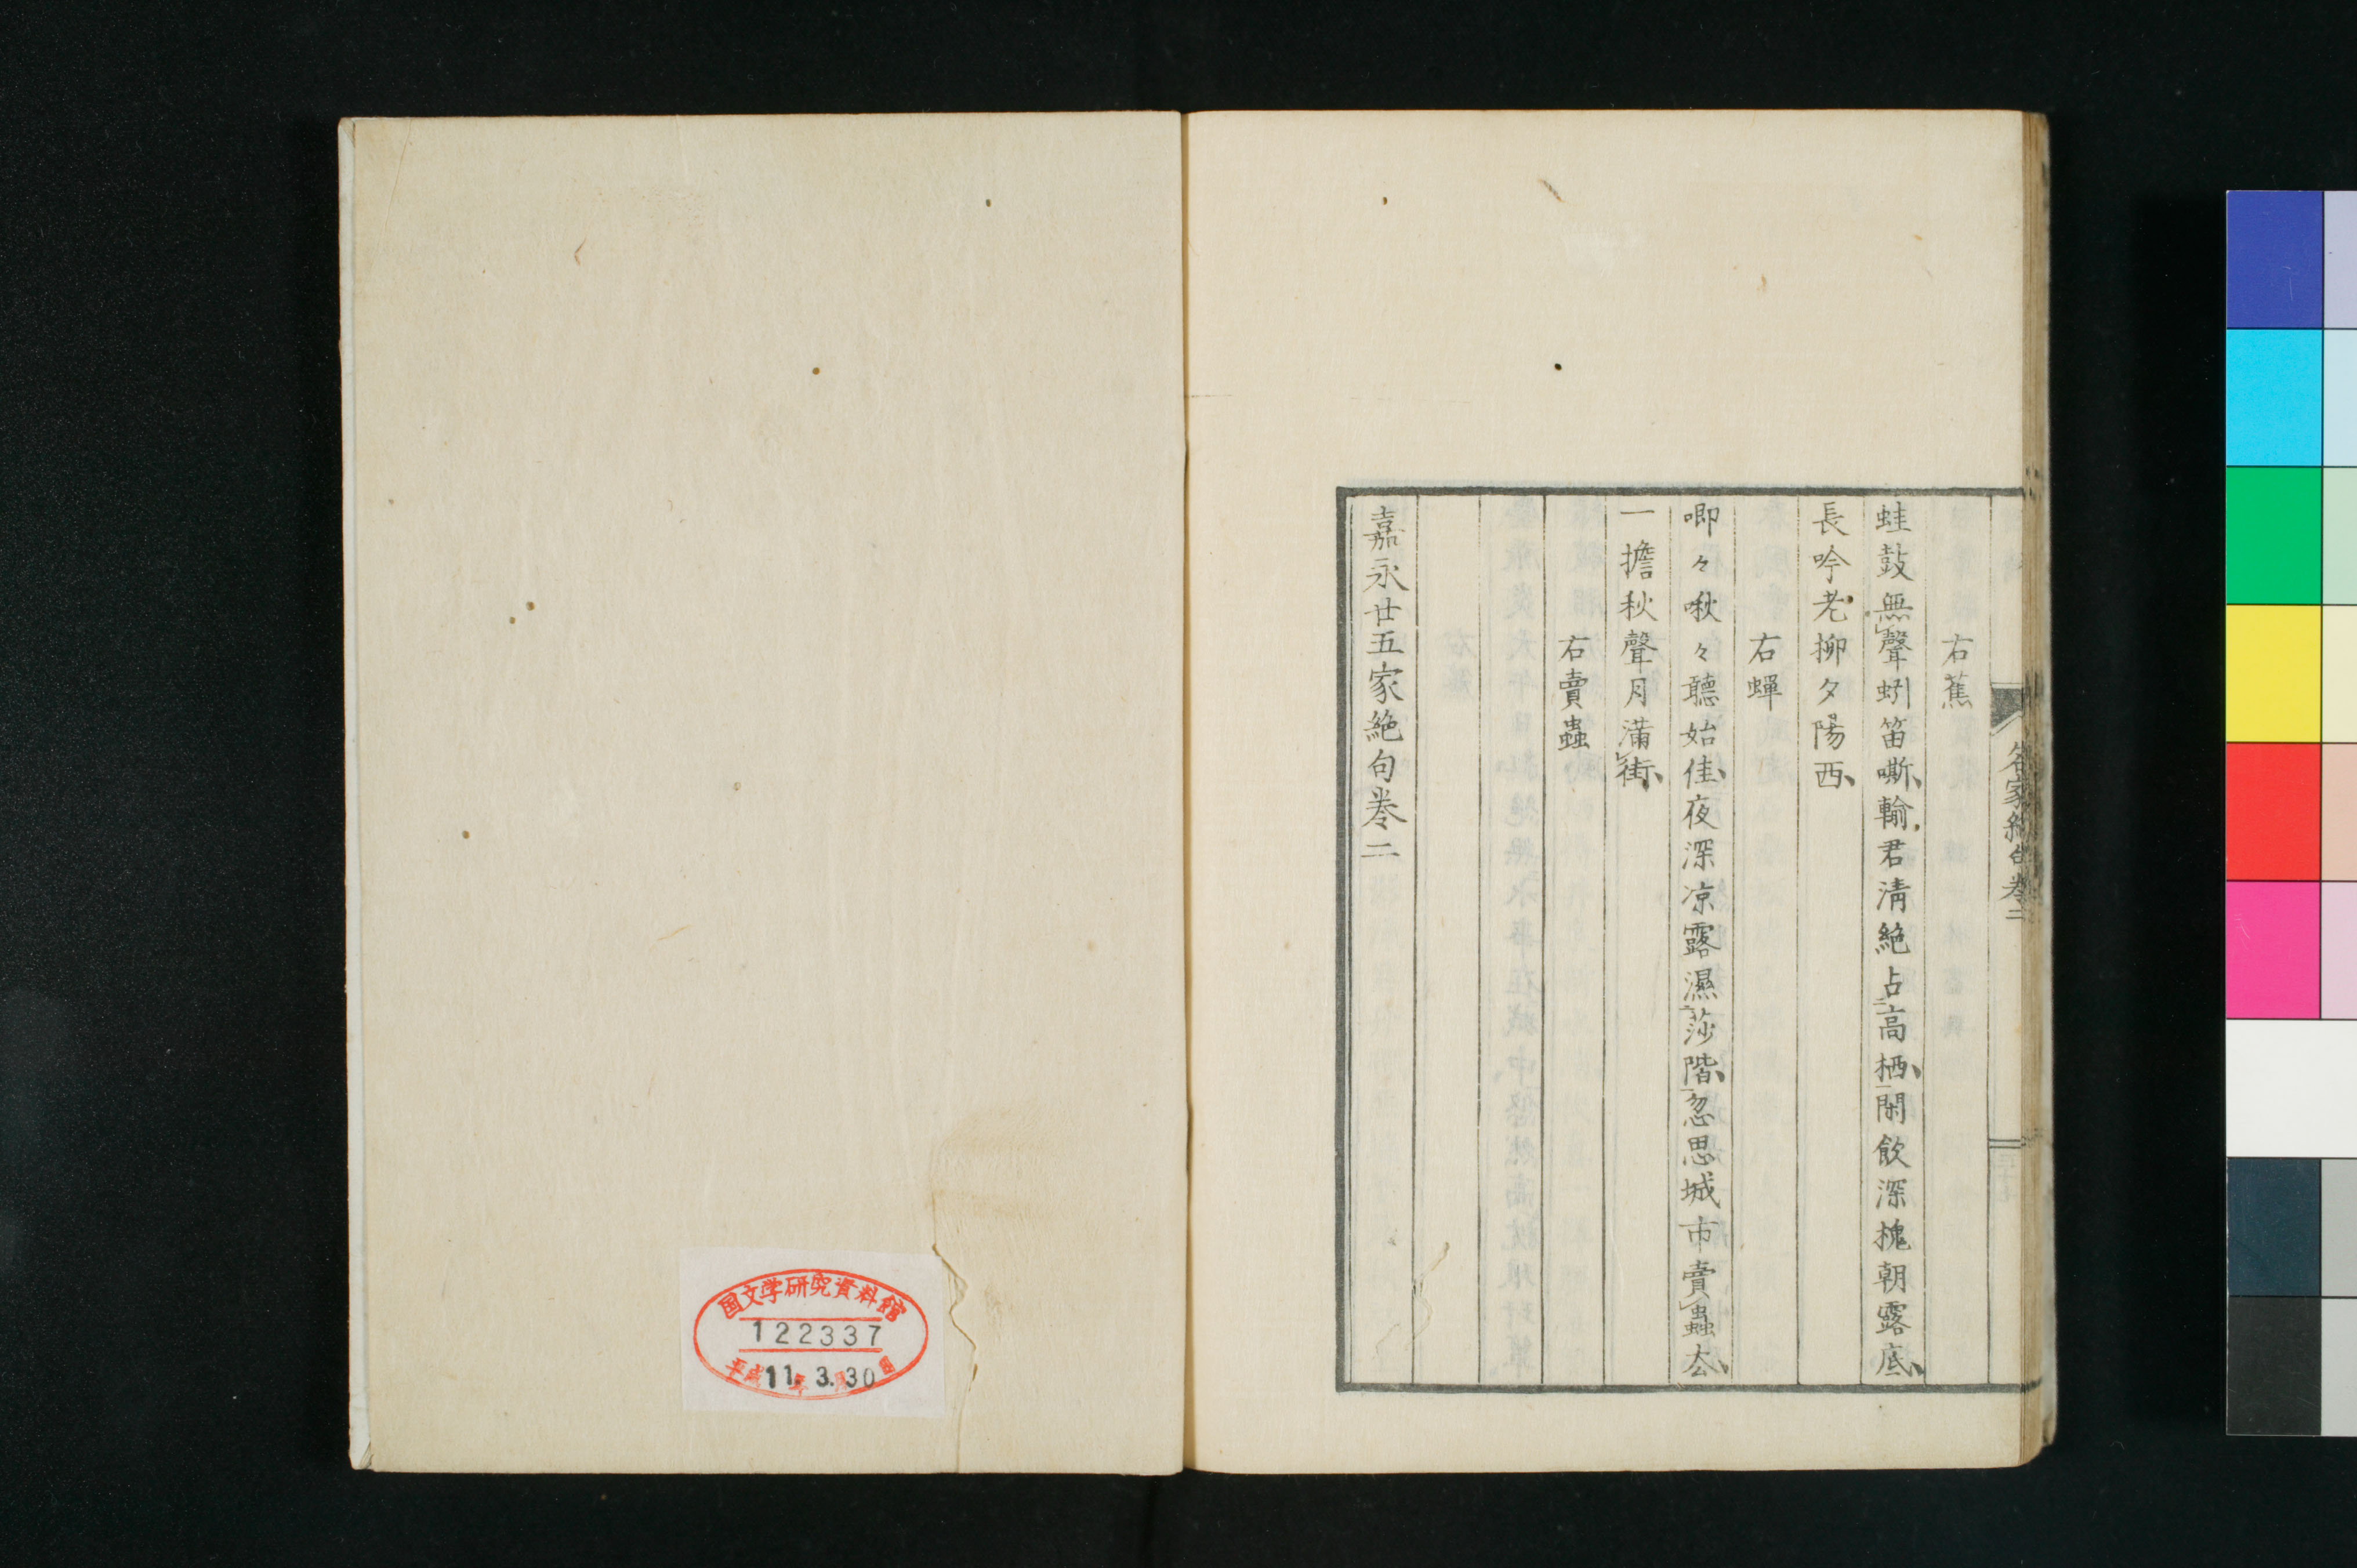 名家絶句巻二
右蕉
蛙鼓無聲蚓笛嘶輸君清絶占高栖閑飲深槐朝露底
長吟老柳夕陽西
右蟬
喞々啾々聽始佳夜深凉露濕莎階忽思城市賣蟲厺
一擔秋聲月滿街
右賣蟲
嘉永廿五家絶句巻二
国文学研究資料館
122337
平成11年3月30日